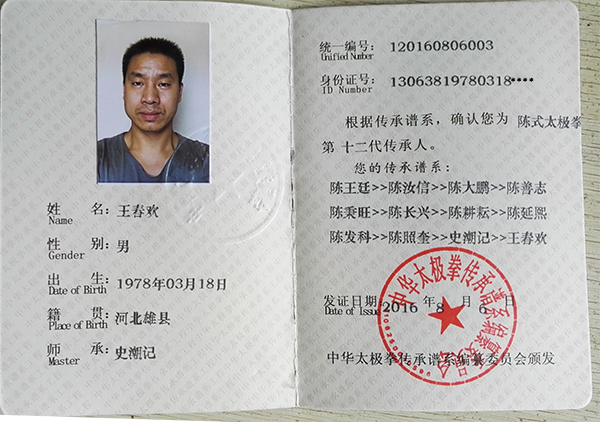 姓 名：王春欢
Name
性 别：男
Gender
出 生：1978年03月18日
Date of Birth
籍 贯：河北雄县
Place of Birth
师 承：史潮记
Master
统一编号：120160806003
Unified Number
身份证号：13063819780318****
ID Number
根据传承谱系，确认您为 陈式太极拳
第 十二代传承人。
您的传承谱系：
陈王廷>>陈汝信>>陈大鹏>>陈善志
陈秉旺>>陈长兴>>陈耕耘>>陈延熙
陈发科>>陈照奎>>史潮记>>王春欢
发证日期：2016 年 8 月 6 日
Date of Issue
中华太极拳传承谱系编纂委员会
中华太极拳传承谱系编纂委员会颁发